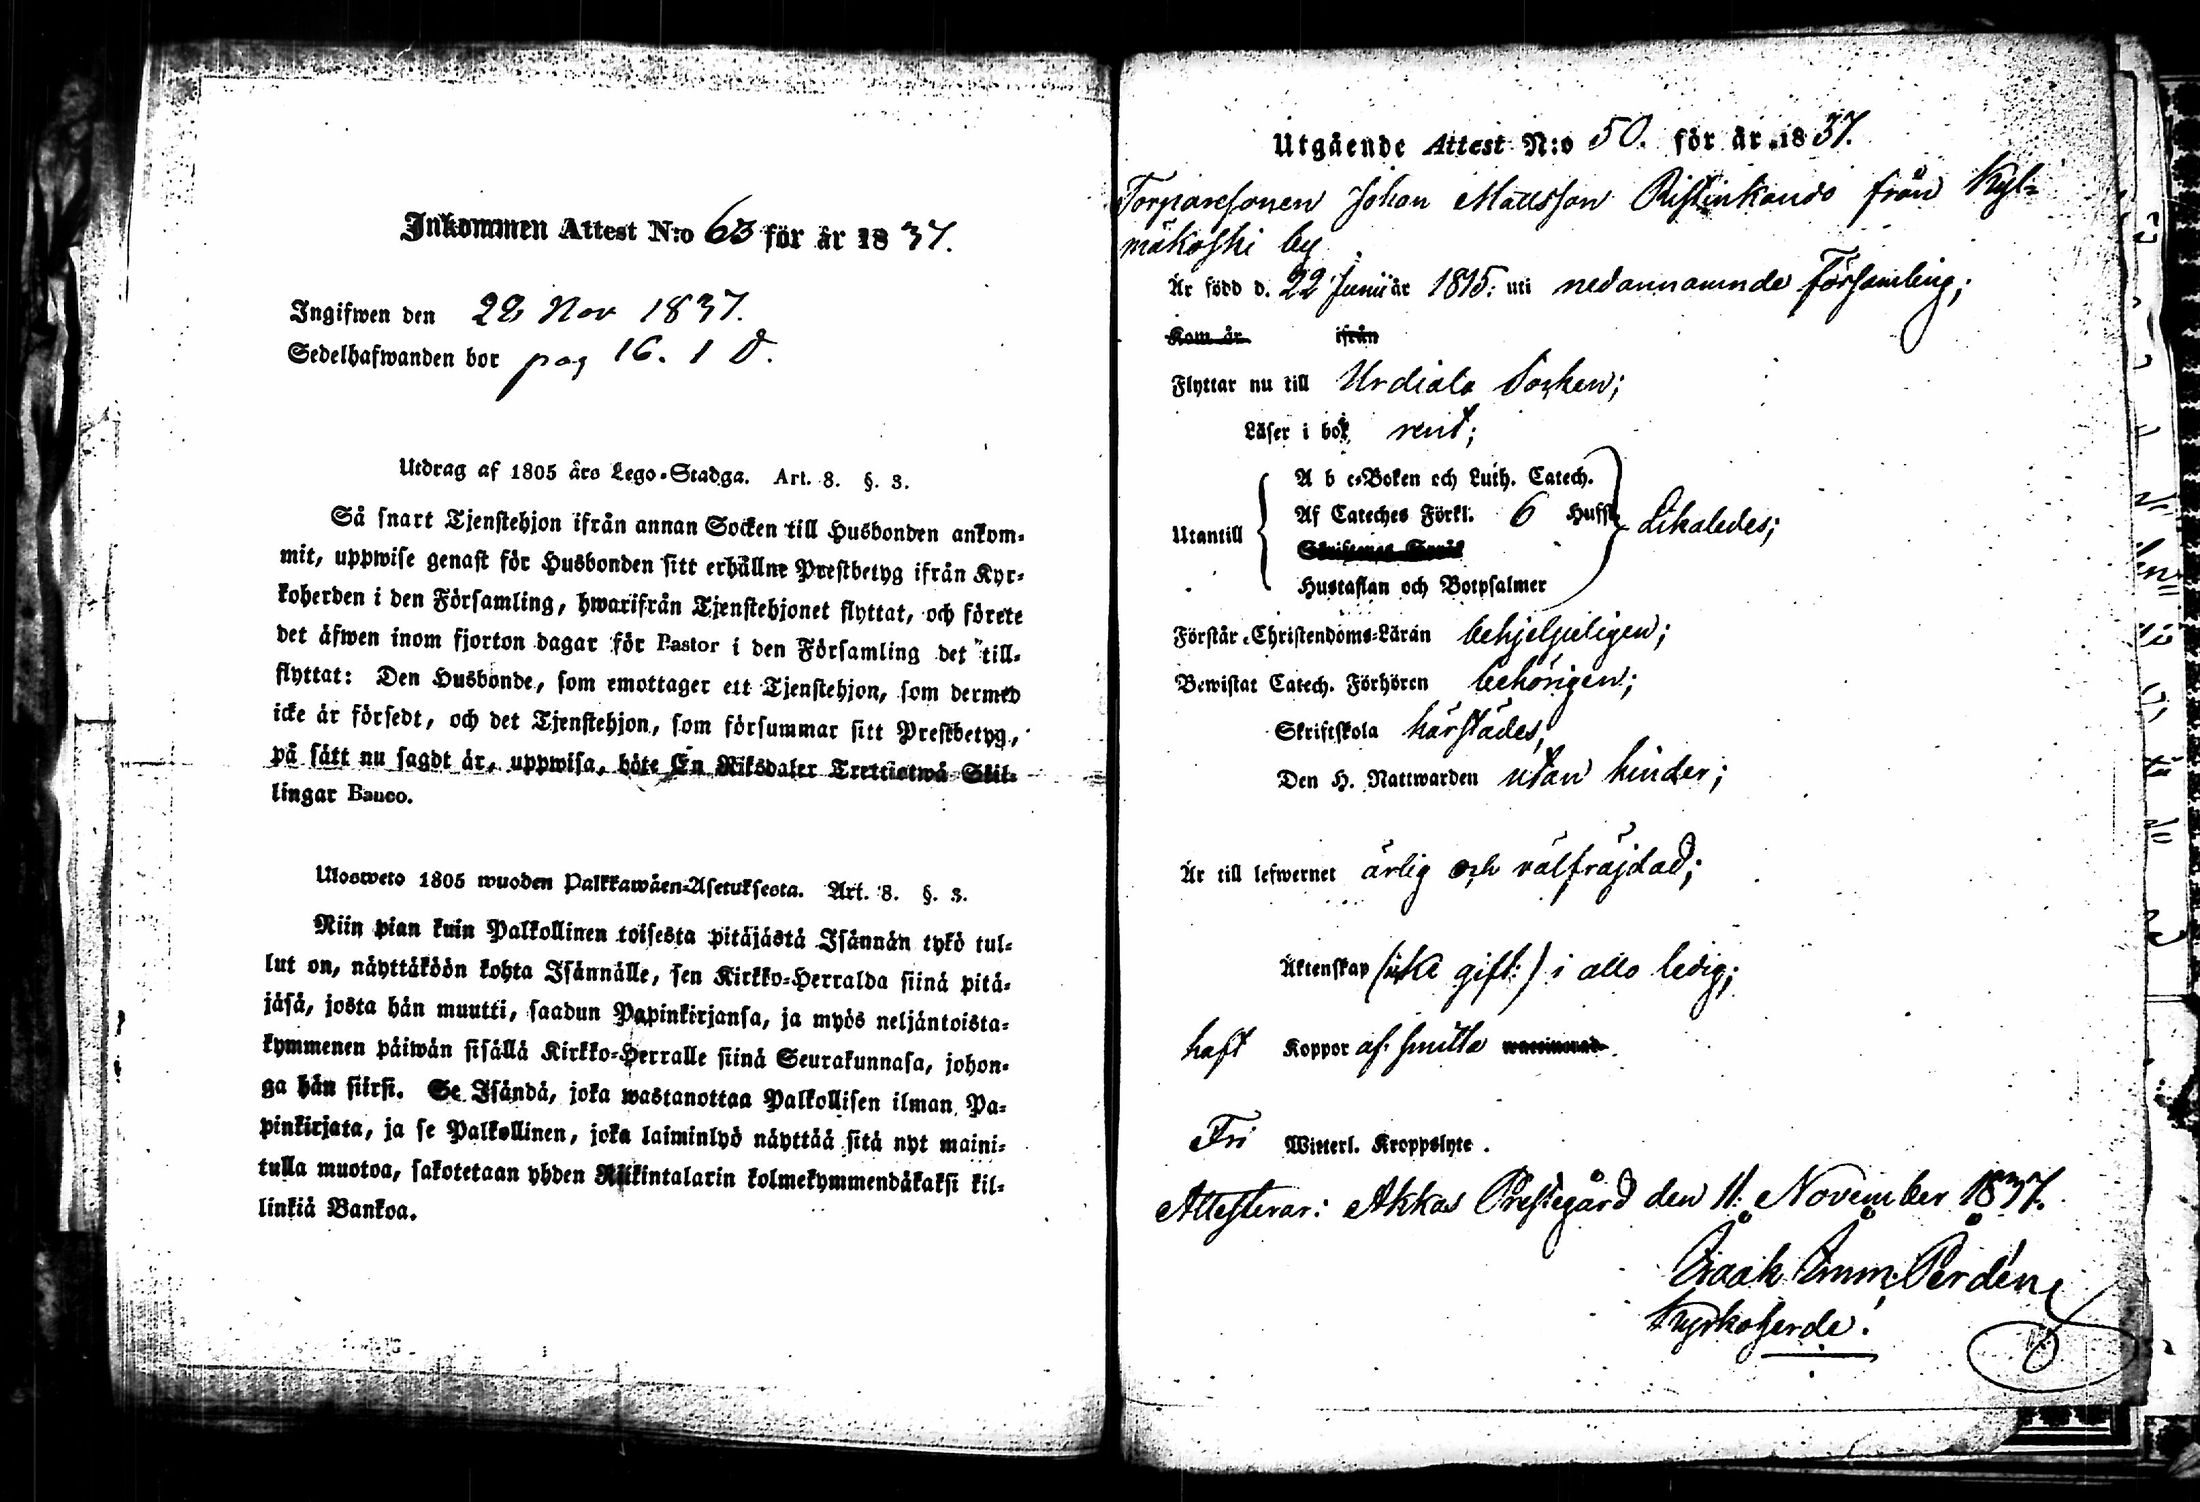 Inkommen Attest N:o 63 för år 1837.
Ingifwen den 28 Nov 1837.
Sedelhafwanden bor pag 16. 1 D.
Utdrag af 1805 års Lego-Stadga. Art. 8. §. 3.
Så snart Tjenstehjon ifrån annan Socken till Husbonden ankom-
mit, uppwise genast för Husbonden sitt erhållne Prestbetyg ifrån Kyr-
koherden i den Församling, hwarifrån Tjenstehjonet flyttat, och förete
det äfwen inom fjorton dagar för Pastor i den Församling det till-
flyttat: Den Husbonde, som emottager ett Tjenstehjon, som dermed
icke är försedt, och det Tjenstehjon, som försummar sitt Prestbetyg,
på sätt nu sagdt är, uppwisa, böte En Riksdaler Trettiotwå Skil-
lingar Banco.
Ulosweto 1805 wuoden Palkkawäen-Asetuksesta. Art. 8. §. 3.
Niin pian kuin Palkollinen toisesta pitäjästä Isännän tykö tul-
lut on, näyttäköön kohta Isännälle, sen Kirkko-Herralda siinä pitä-
jäsä, josta hän muutti, saadun Papinkirjansa, ja myös neljäntoista-
kymmenen päiwän sisällä Kirkko-Herralle siinä Seurakunnasa, johon-
ga hän siirsi. Se Isändä, joka wastanottaa Palkollisen ilman Pa-
pinkirjata, ja se Palkollinen, joka laiminlyö näyttää sitä nyt maini-
tulla muotoa, sakotetaan yhden Riikintalarin kolmekymmendäkaksi kil-
linkiä Bankoa.
Utgående Attest N:o 50. för år 1837.
Torparesonen Johan Mattsson Ristinkando från Kyl-
mäkoski by
Är född d. 22 Junii år 1815: uti nedannamnde Församling;
Kom år ifrån
Flyttar nu till Urdiala Socken;
Läser i bok rent;
A b c-Boken och Luth. Catech.
Af Cateches Förkl. 6 Hufst.
Utantill likaledes;
Hustaflan och Botpsalmer
Förstår Christendoms-Läran behjelpeligen;
Bewistat Catech. Förhören behörigen;
Skriftskola härstädes,
Den H. Nattwarden utan hinder;
Är till lefwernet ärlig och välfräjdad;
Äktenskap (icke gift:) i allo ledig;
haft Koppor af smitta
Fri Witterl. Kroppslyte.
Attesterar: Akkas Prestegård den 11. November 1837.
Isaak Imm: Perdén
Kyrkoherde.